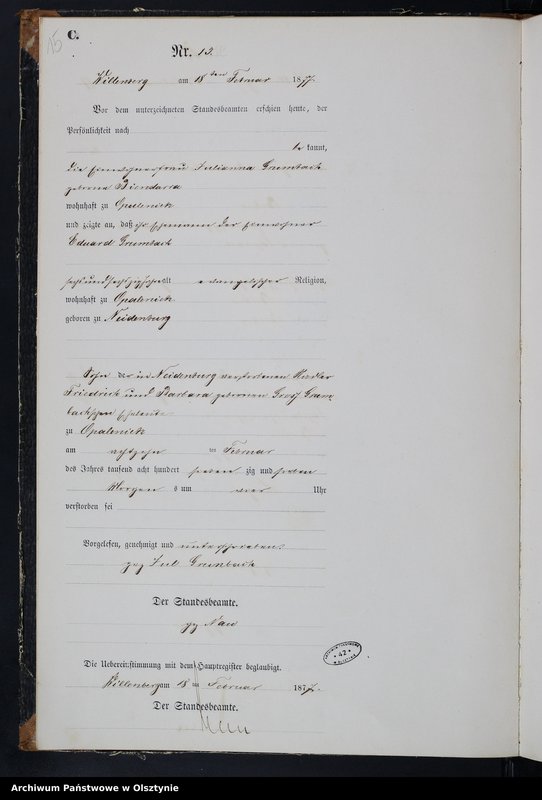 15
C.
Nr. 13.
Willenberg am 18ten Februar 1877.
Vor dem unterzeichneten Standesbeamten erschien heute, der
Persönlichkeit nach
be kannt,
die Einwohnerfrau Julianna Grumbach
geborene Biendaria
wohnhaft zu Opalenietz
und zeigte an, daß ihr Ehemann der Einwohner
Eduard Grumbach
sechsundsechszig Jahre alt evangelischer Religion,
wohnhaft zu Opalenietz
geboren zu Neidenburg
Sohn der in Neidenburg verstorbenen
Friedrich und Barbara geborenen Groß Grum
bachschen Eheleute
zu Opalenietz
am achtzehn ten Februar
des Jahres tausend acht hundert sieben zig und sieben
Morgens um vier Uhr
verstorben sei
Vorgelesen, genehmigt und unterschrieben.
gez Jul Grumbach
Der Standesbeamte.
gez Nau
Die Uebereinstimmung mit dem Hauptregister beglaubigt.
Willenberg am 18 ten Februar 1877.
Der Standesbeamte.
Nau
42
Archiwum Państwowe w Olsztynie